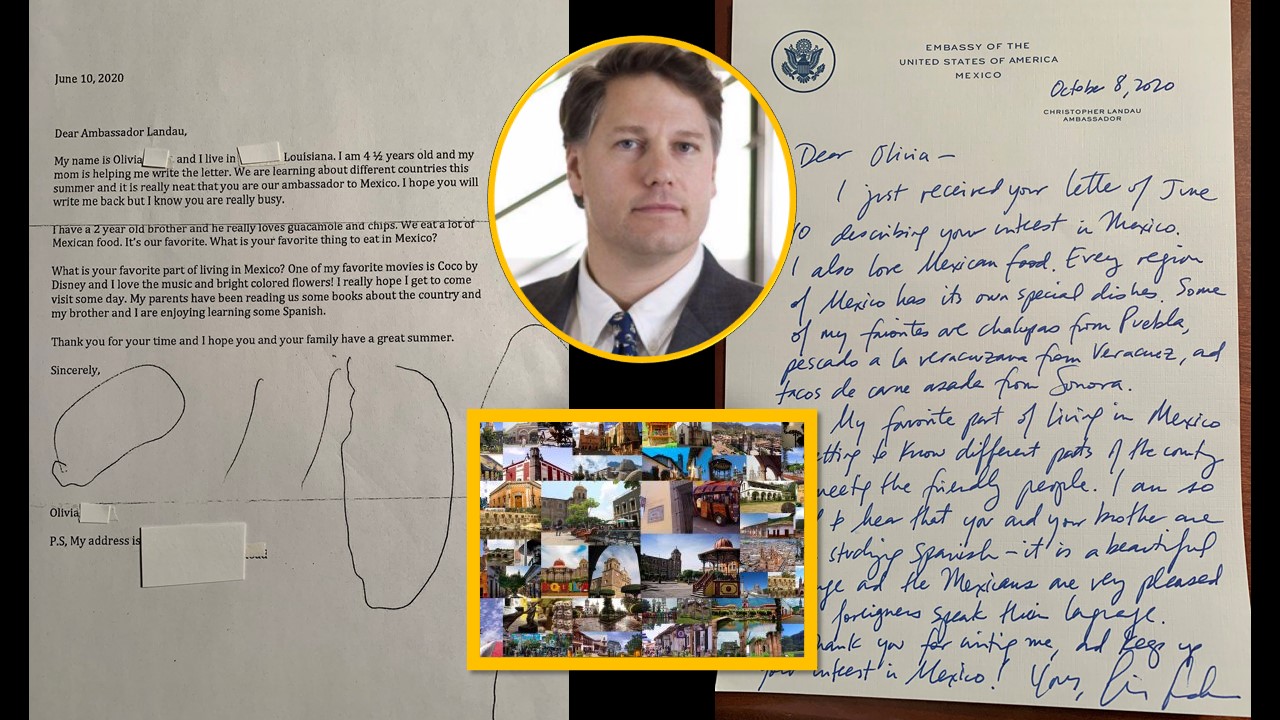 June 10, 2020
Dear Ambassador Landau,
My name is Olivia and I live in Louisiana. I am 4 ½ years old and my
mom is helping me write the letter. We are learning about different countries this
summer and it is really neat that you are our ambassador to Mexico. I hope you will
write me back but I know you are really busy.
I have a 2 year old brother and he really loves guacamole and chips. We eat a lot of
Mexican food. It's our favorite. What is your favorite thing to eat in Mexico?
What is your favorite part of living in Mexico? One of my favorite movies is Coco by
Disney and I love the music and bright colored flowers! I really hope I get to come
visit some day. My parents have been reading us some books about the country and
my brother and I are enjoying learning some Spanish.
Thank you for your time and I hope you and your family have a great summer.
Sincerely,
Olivia
P.S, My address is
EMBASSY OF THE
UNITED STATES OF AMERICA
MEXICO
October 8, 2020
CHRISTOPHER LANDAU
AMBASSADOR
Dear Olivia –
I just received your letter of June
10 describing your interest in Mexico.
I also love Mexican food. Every region
of Mexico has its own special dishes. Some
of my favorites are chalupas from Puebla,
pescado a la veracruzana from Veracruz, and
tacos de carne asada from Sonora.
My favorite part of living in Mexico
etting to know different parts of the country
meeting the friendly people. I am so
to hear that you and your brother are
studying Spanish – it is a beautiful
ge and the Mexicans are very pleased
foreigners speak their language.
hank you for writing me, and keep up
your interest in Mexico! Yours,